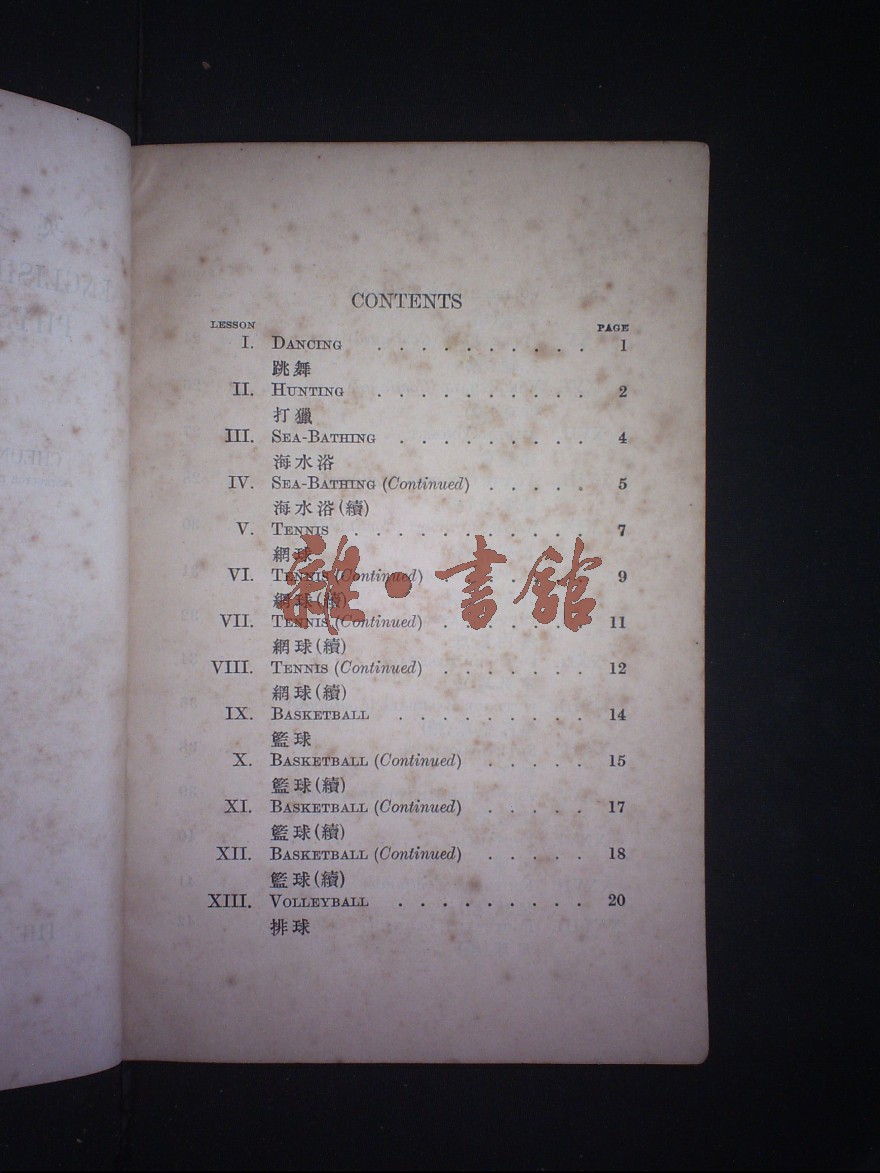 CONTENTS
LESSON PAGE
I. DANCING . . . . . . . . . . 1
跳舞
II. HUNTING . . . . . . . . . . 2
打獵
III. SEA-BATHING . . . . . . . . . 4
海水浴
IV. SEA-BATHING (Continued) . . . . . 5
海水浴(續)
V. TENNIS . . . . . . . . . . . 7
網球
VI. TENNIS (Continued) . . . . . . . 9
網球(續)
VII. TENNIS (Continued) . . . . . . . 11
網球(續)
VIII. TENNIS (Continued) . . . . . . . 12
網球(續)
IX. BASKETBALL . . . . . . . . . 14
籃球
X. BASKETBALL (Continued) . . . . . 15
籃球(續)
XI. BASKETBALL (Continued) . . . . . 17
籃球(續)
XII. BASKETBALL (Continued) . . . . . 18
籃球(續)
XIII. VOLLEYBALL . . . . . . . . . 20
排球
雜·書館